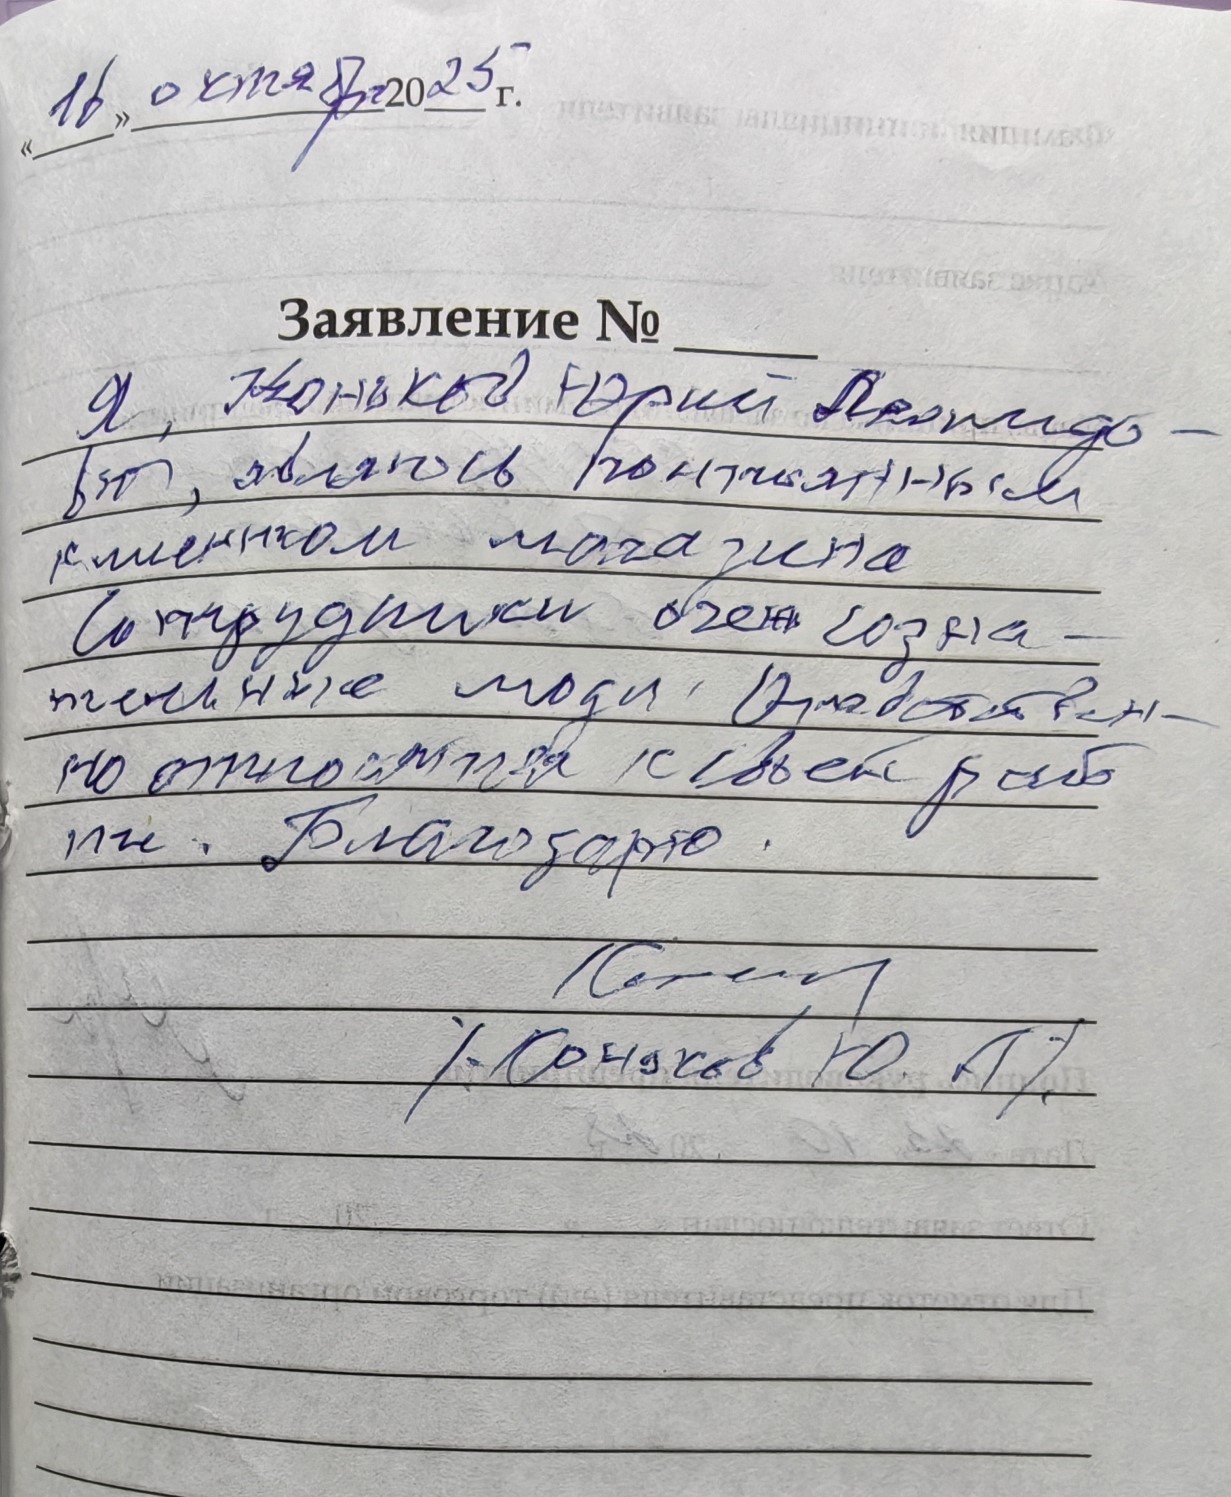 «16» октября 2025 г.
Заявление №
Я, Коньков Юрий Леонидо-
вич, являюсь постоянным
клиентом магазина
Сотрудники очень созна-
тельные люди.
но относятся к своей рабо
те. Благодарю.
/-Коньков Ю. Л./.